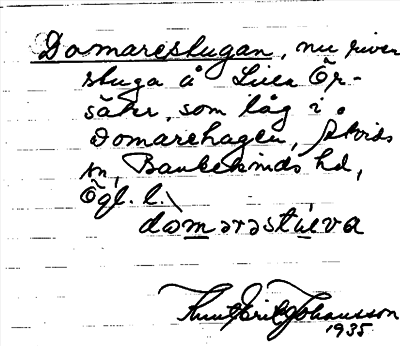 Domarestugan, nu river
stuga å Lilla Ör-
säkr, som låg i
Domarehagen, Åtvids
sn, Bankekinds hd,
Ögl. l.
domərəstu̇eva
Knut Erik Johansson
1935